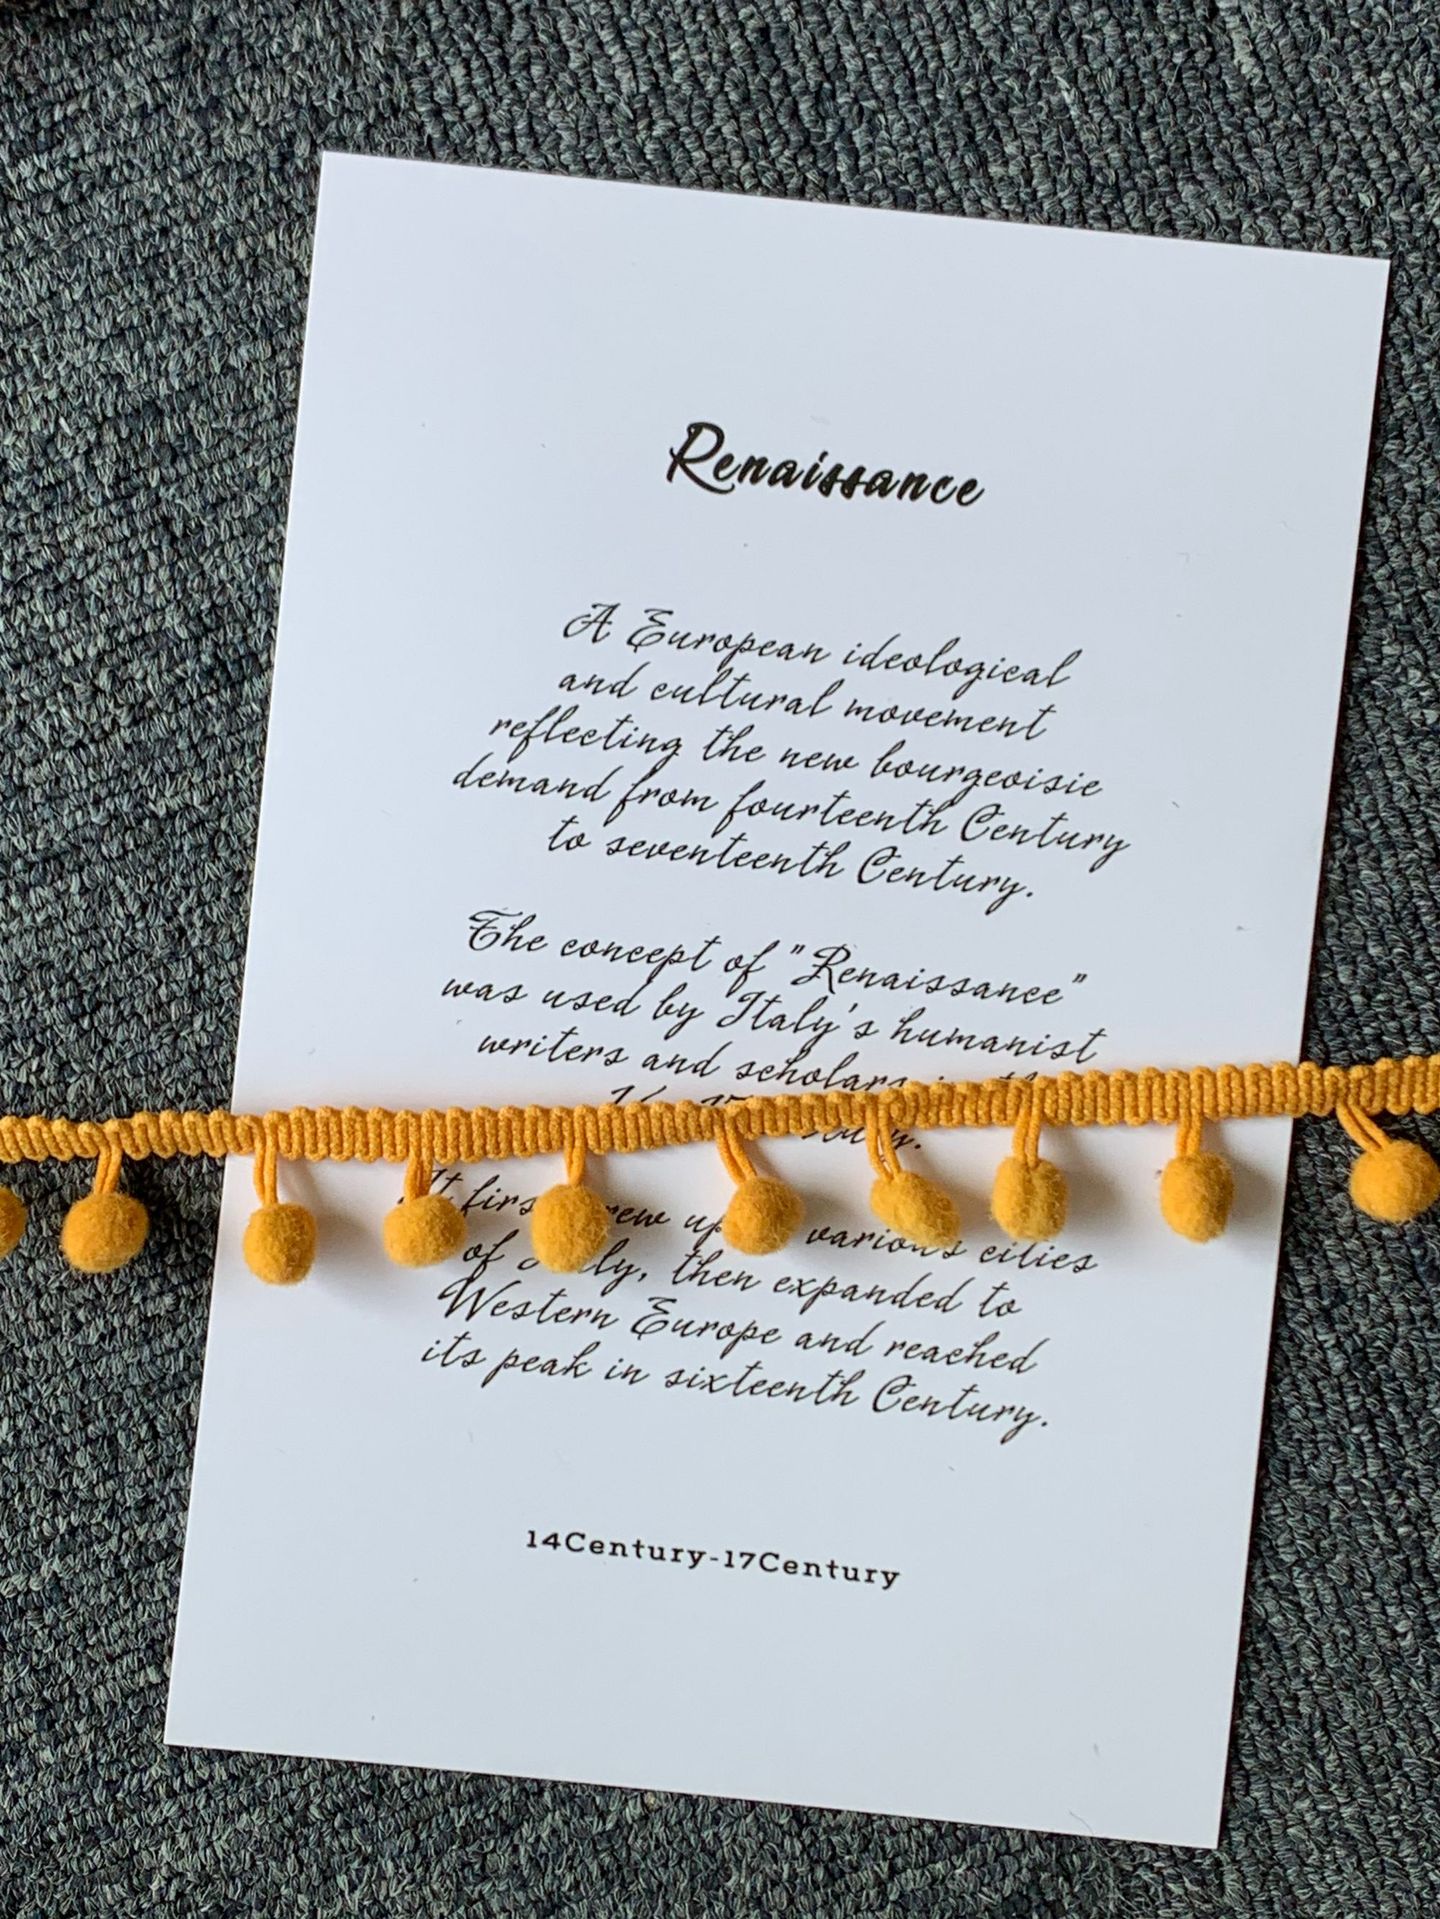 Renaissance
A European ideological
and cultural movement
reflecting the new bourgeoisie
demand from fourteenth Century
to seventeenth Century.
The concept of "Renaissance"
was used by Italy's humanist
writers and scholars
It first up various cities
of Italy, then expanded to
Western Europe and reached
its peak in sixteenth Century.
14Century-17Century